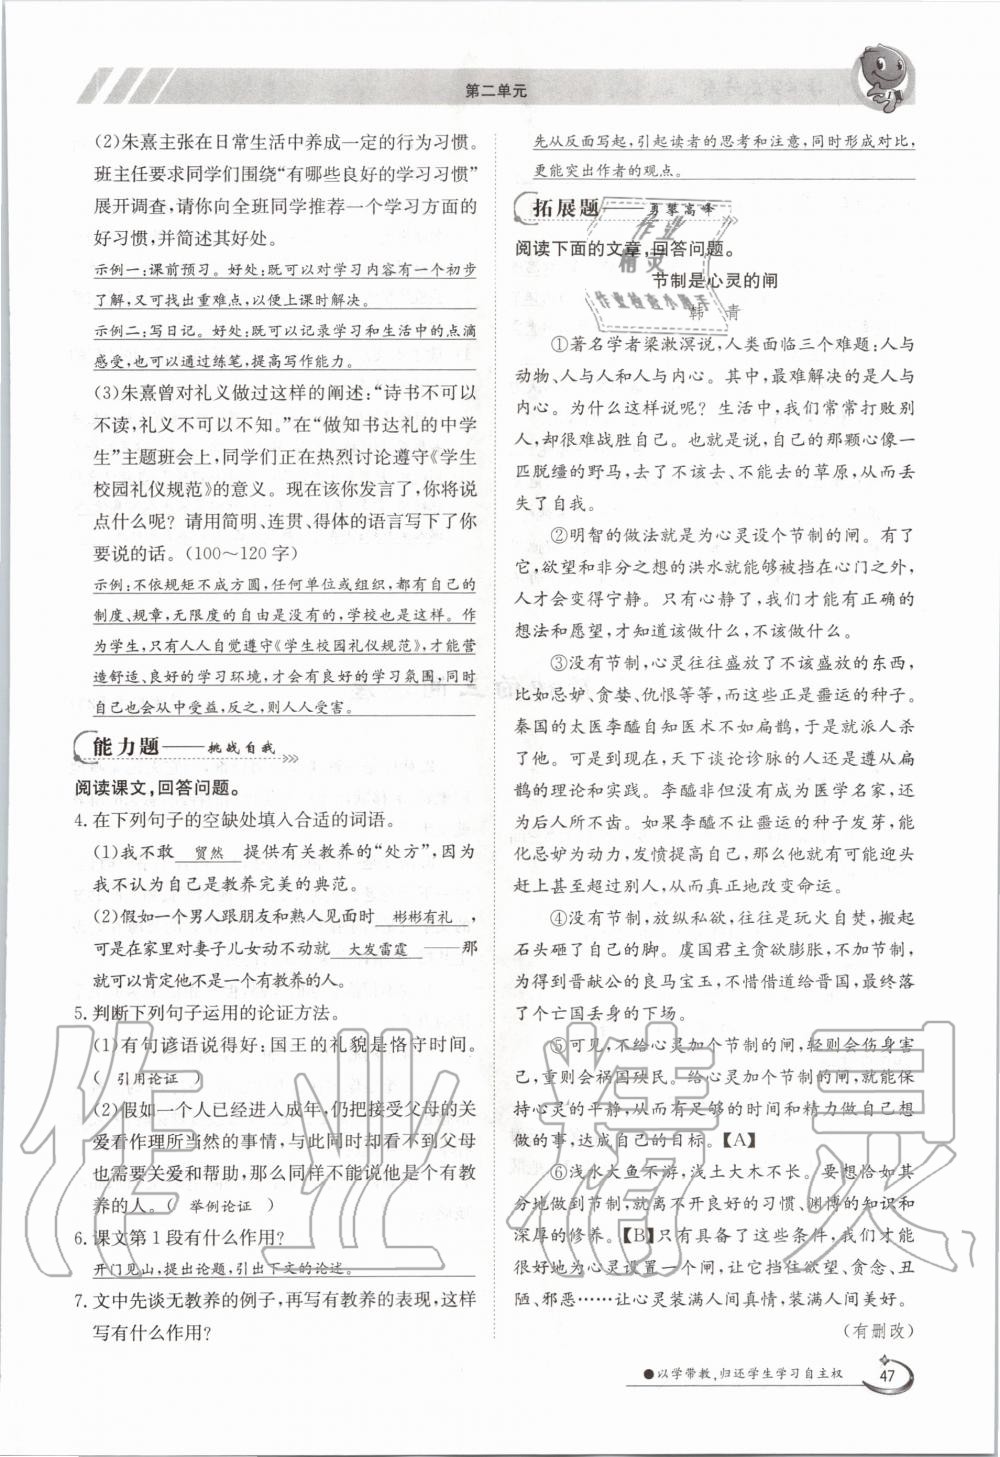 第二单元
(2)朱熹主张在日常生活中养成一定的行为习惯。
班主任要求同学们围绕“有哪些良好的学习习惯”
展开调查,请你向全班同学推荐一个学习方面的
好习惯,并简述其好处。
示例一:课前预习。好处:既可以对学习内容有一个初步
了解,又可找出重难点,以便上课时解决。
示例二:写日记。好处:既可以记录学习和生活中的点滴
感受,也可以通过练笔,提高写作能力。
(3)朱熹曾对礼义做过这样的阐述:“诗书不可以
不读,礼义不可以不知。”在“做知书达礼的中学
生”主题班会上,同学们正在热烈讨论遵守《学生
校园礼仪规范》的意义。现在该你发言了,你将说
点什么呢？请用简明、连贯、得体的语言写下了你
要说的话。(100～120字)
示例:不依规矩不成方圆,任何单位或组织,都有自己的
制度、规章,无限度的自由是没有的,学校也是这样。作
为学生,只有人人自觉遵守《学生校园礼仪规范》,才能营
造舒适、良好的学习环境,才会有良好的学习氛围,同时
自己也会从中受益,反之,则人人受害。
能力题——挑战自我
阅读课文,回答问题。
4. 在下列句子的空缺处填入合适的词语。
(1)我不敢 贸然 提供有关教养的“处方”,因为
我不认为自己是教养完美的典范。
(2)假如一个男人跟朋友和熟人见面时 彬彬有礼 ,
可是在家里对妻子儿女动不动就 大发雷霆 ——那
就可以肯定他不是一个有教养的人。
5. 判断下列句子运用的论证方法。
(1)有句谚语说得好:国王的礼貌是恪守时间。
( 引用论证 )
(2)假如一个人已经进入成年,仍把接受父母的关
爱看作理所当然的事情,与此同时却看不到父母
也需要关爱和帮助,那么同样不能说他是个有教
养的人。( 举例论证 )
6. 课文第1段有什么作用?
开门见山,提出论题,引出下文的论述。
7. 文中先谈无教养的例子,再写有教养的表现,这样
写有什么作用?
先从反面写起,引起读者的思考和注意,同时形成对比,
更能突出作者的观点。
拓展题——勇攀高峰
阅读下面的文章,回答问题。
节制是心灵的闸
韩 青
①著名学者梁漱溟说,人类面临三个难题:人与
动物、人与人和人与内心。其中,最难解决的是人与
内心。为什么这样说呢？生活中,我们常常打败别
人,却很难战胜自己。也就是说,自己的那颗心像一
匹脱缰的野马,去了不该去、不能去的草原,从而丢
失了自我。
②明智的做法就是为心灵设个节制的闸。有了
它,欲望和非分之想的洪水就能够被挡在心门之外,
人才会变得宁静。只有心静了,我们才能有正确的
想法和愿望,才知道该做什么,不该做什么。
③没有节制,心灵往往会盛放不应盛放的东西,
比如忌妒、贪婪、仇恨等等,而这些正是噩运的种子。
秦国的太医李醯自知医术不如扁鹊,于是就派人杀
了他。可是,时至现在,天下谈论诊脉的人还是遵从扁
鹊的理论和实践。李醯非但没有成为医学名家,还
为后人所不齿。如果李醯不让噩运的种子发芽,能
化忌妒为动力,发愤提高自己,那么他就有可能迎头
赶上甚至超过别人,从而真正地改变命运。
④没有节制,放纵私欲,往往是玩火自焚,搬起
石头砸了自己的脚。虞国君主贪欲膨胀,不加节制,
为得到晋献公的良马宝玉,不惜借道给晋国,最终落
了个亡国丢身的下场。
⑤可见,不给心灵加个节制的闸,轻则会伤身害
己,重则会祸国殃民。给心灵加个节制的闸,就能保
持心灵的平静,从而有足够的时间和精力做自己想
做的事,达成自己的目标。【A】
⑥浅水大鱼不游,浅土大木不长。要想恰如其
分地做到节制,就离不开良好的习惯、渊博的知识和
深厚的修养。【B】只有具备了这些条件,我们才能
很好地为心灵设置一个闸,让它挡住欲望、贪念、丑
陋、邪恶……让心灵装满人间真情,装满人间美好。
(有删改)
●以学带教,归还学生学习自主权
47
作业
精灵
作业检查小助手
作业精灵